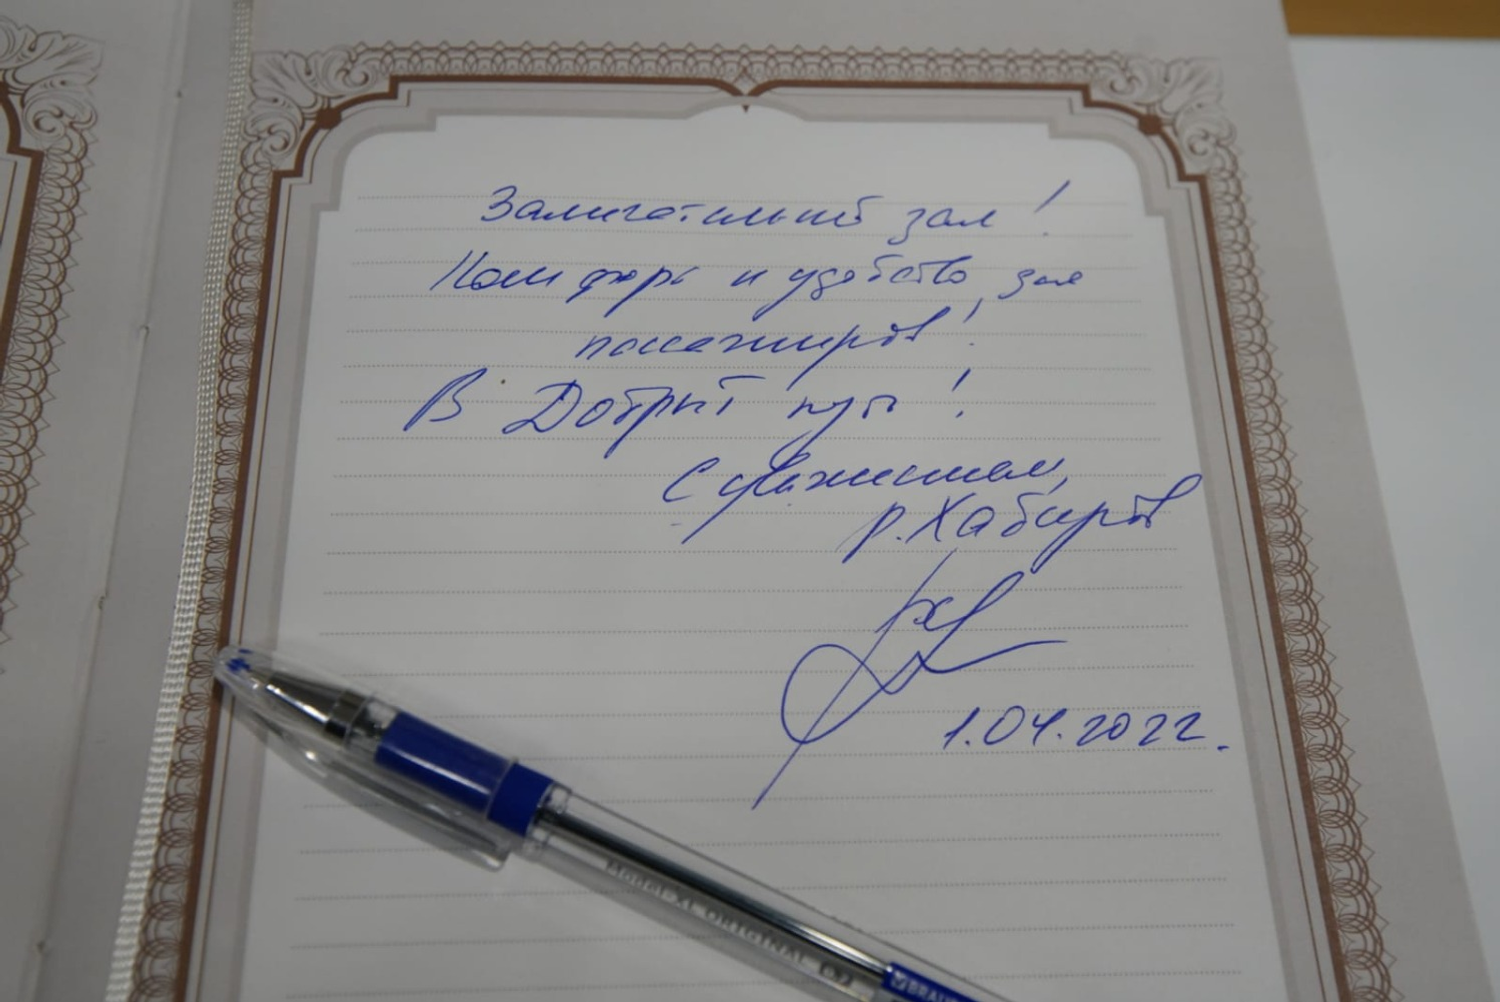 Замечательный зал!
Комфорт и удобство для
пассажиров!
В Добрый путь!
С уважением,
Р. Хабиров
1.04.2022.
Model-XL ORIGINAL 0.7
BRAU